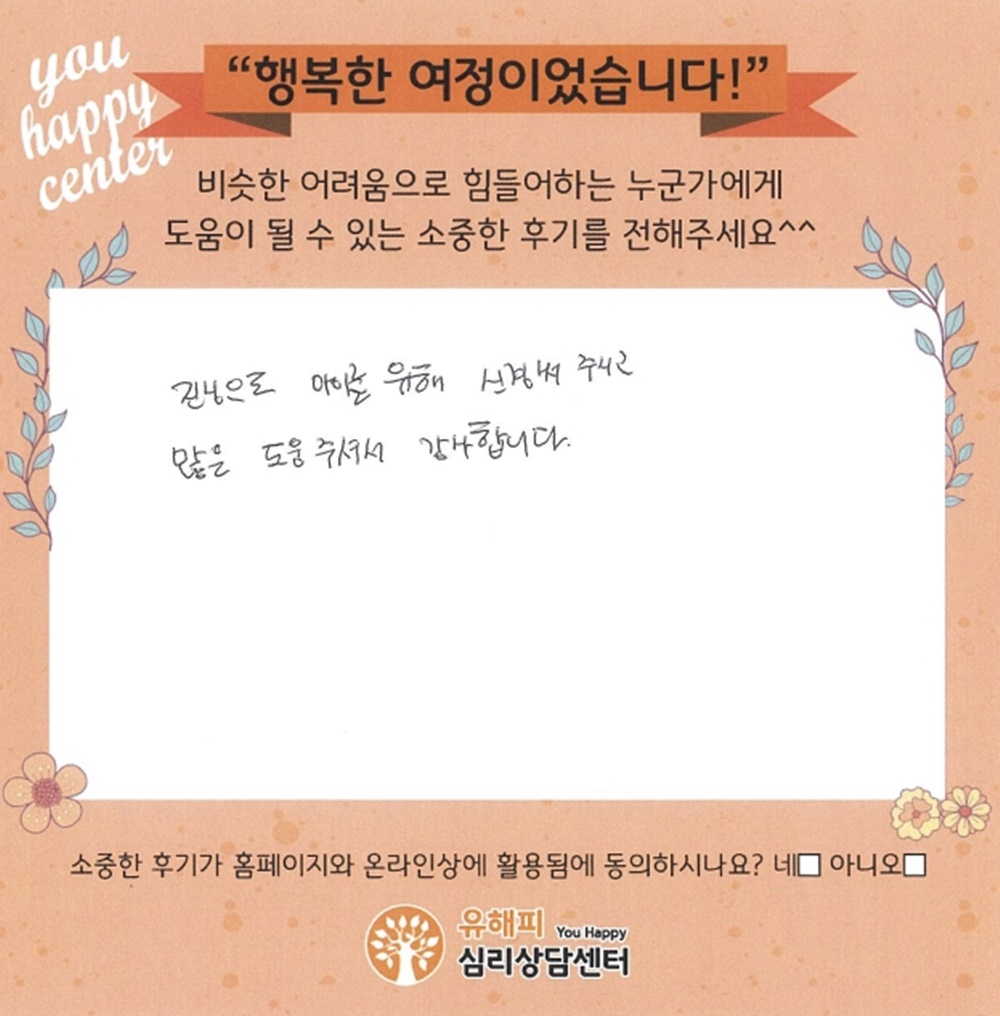 you
happy
center
“행복한 여정이었습니다!”
비슷한 어려움으로 힘들어하는 누군가에게
도움이 될 수 있는 소중한 후기를 전해주세요^^
진심으로 아이를 위해 신경써 주시고
많은 도움 주셔서 감사합니다.
소중한 후기가 홈페이지와 온라인상에 활용됨에 동의하시나요? 네□ 아니오□
유해피 You Happy
심리상담센터